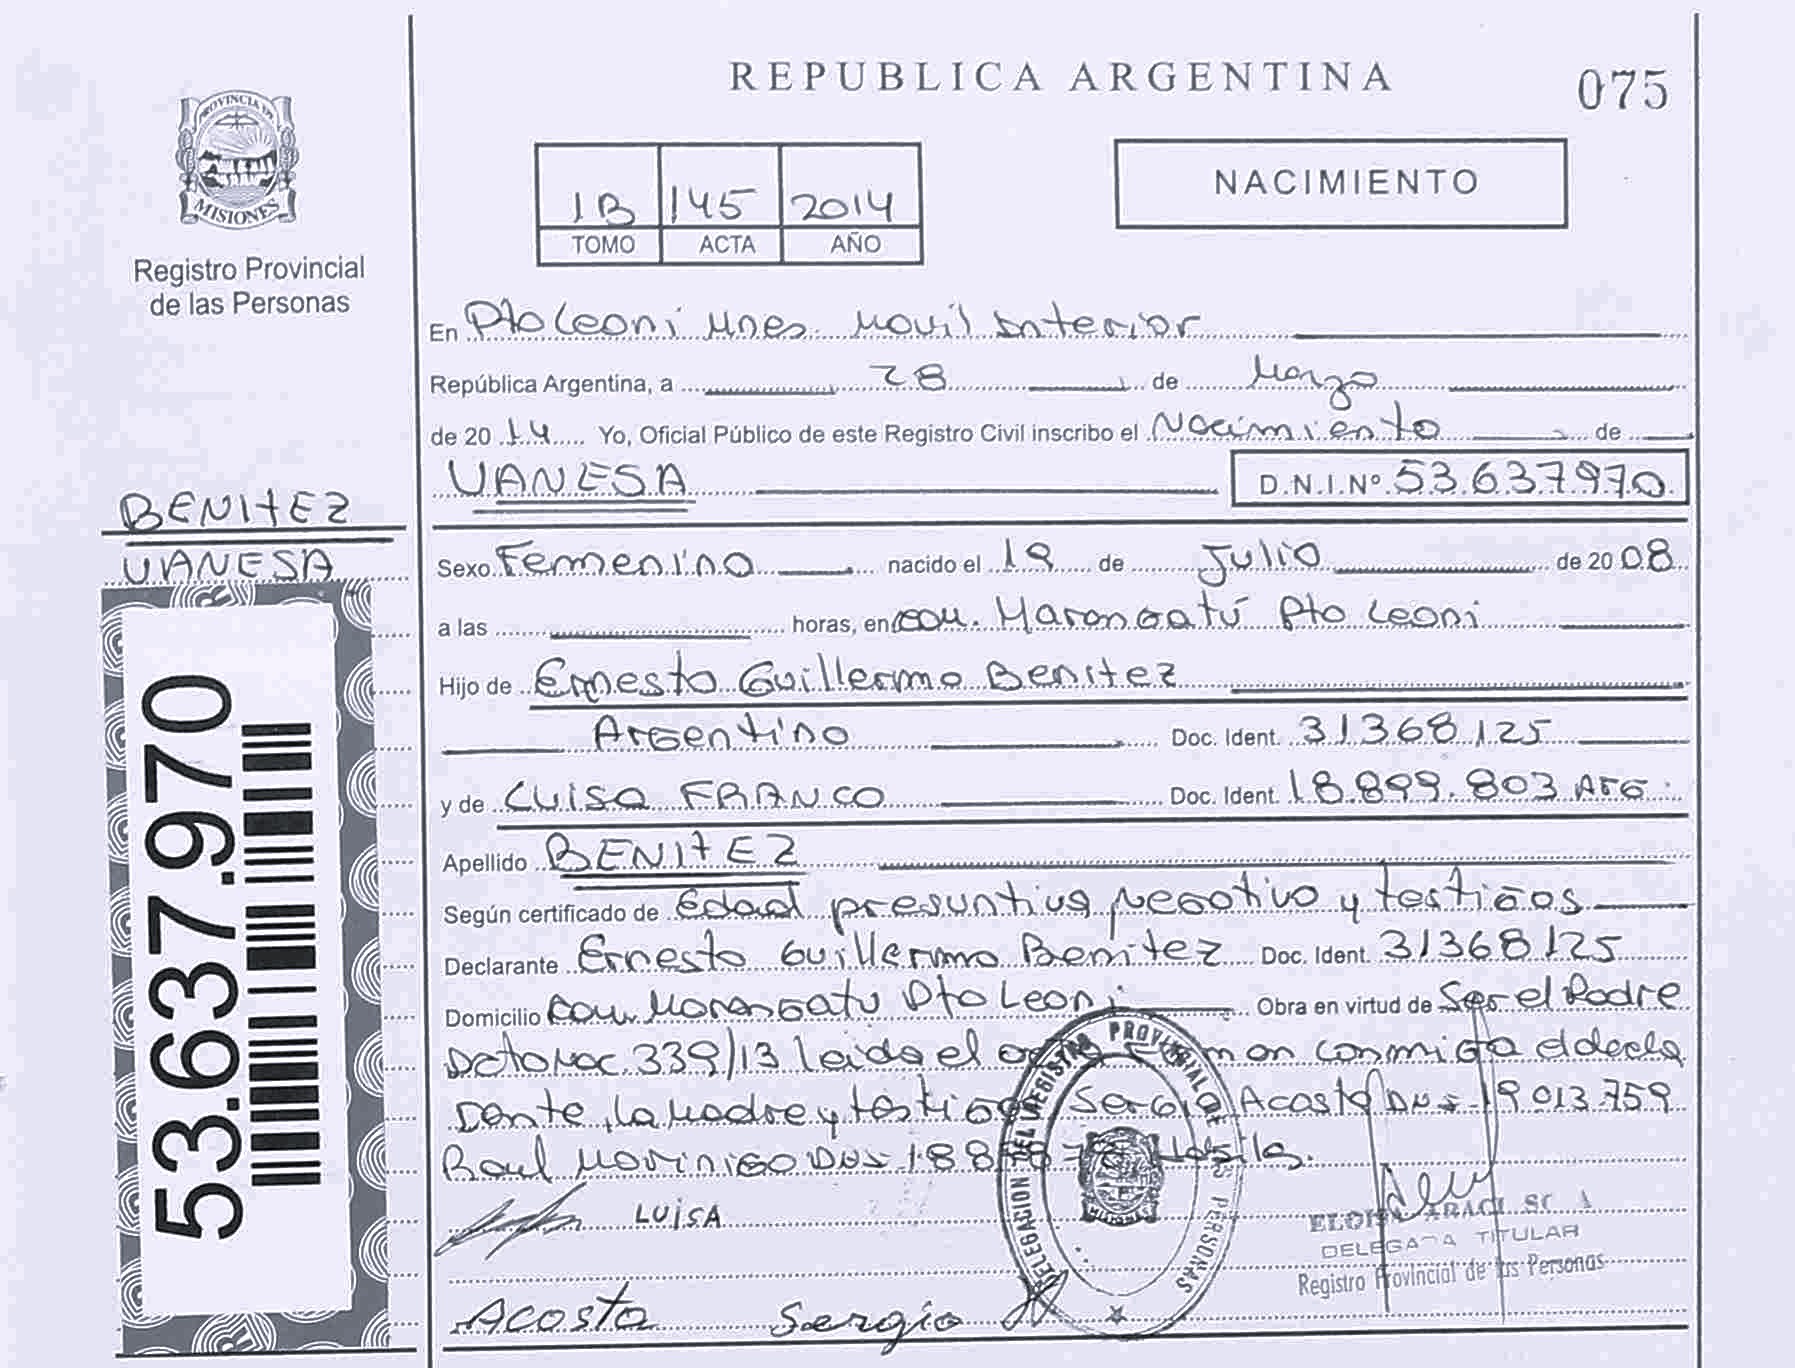 REPUBLICA ARGENTINA
075
PROVINCIA DE
MISIONES
Registro Provincial
de las Personas
1B 145 2014
TOMO ACTA AÑO
NACIMIENTO
En Pto Leoni Mnes. Movil Interior
República Argentina, a 28 de Marzo
de 2014 Yo, Oficial Público de este Registro Civil inscribo el Nacimiento de
VANESA D.N.I.Nº 53.637.970
BENITEZ
VANESA
53.637.970
Sexo Femenino nacido el 19 de Julio de 2008
a las horas, en com. Marangatú Pto Leoni
Hijo de Ernesto Guillermo Benitez
Argentino Doc. Ident. 31368125
y de Luisa FRANCO Doc. Ident. 18.899.803 Arg.
Apellido BENITEZ
Según certificado de Edad presuntiva negativo y testigos
Declarante Ernesto Guillermo Benitez Doc. Ident. 31368125
Domicilio com. Marangatu Pto Leoni Obra en virtud de Ser el Padre
339/13 leida el acta conmigo el decla
rante, la Madre y testigos Sergio Acosta DNI 19013759
Raul Moringo DNI
LUiSA
Acosta Sergio
DELEGACION DEL REGISTRO PROVINCIAL DE LAS PERSONAS
DELEGADA TITULAR
Registro Provincial de las Personas